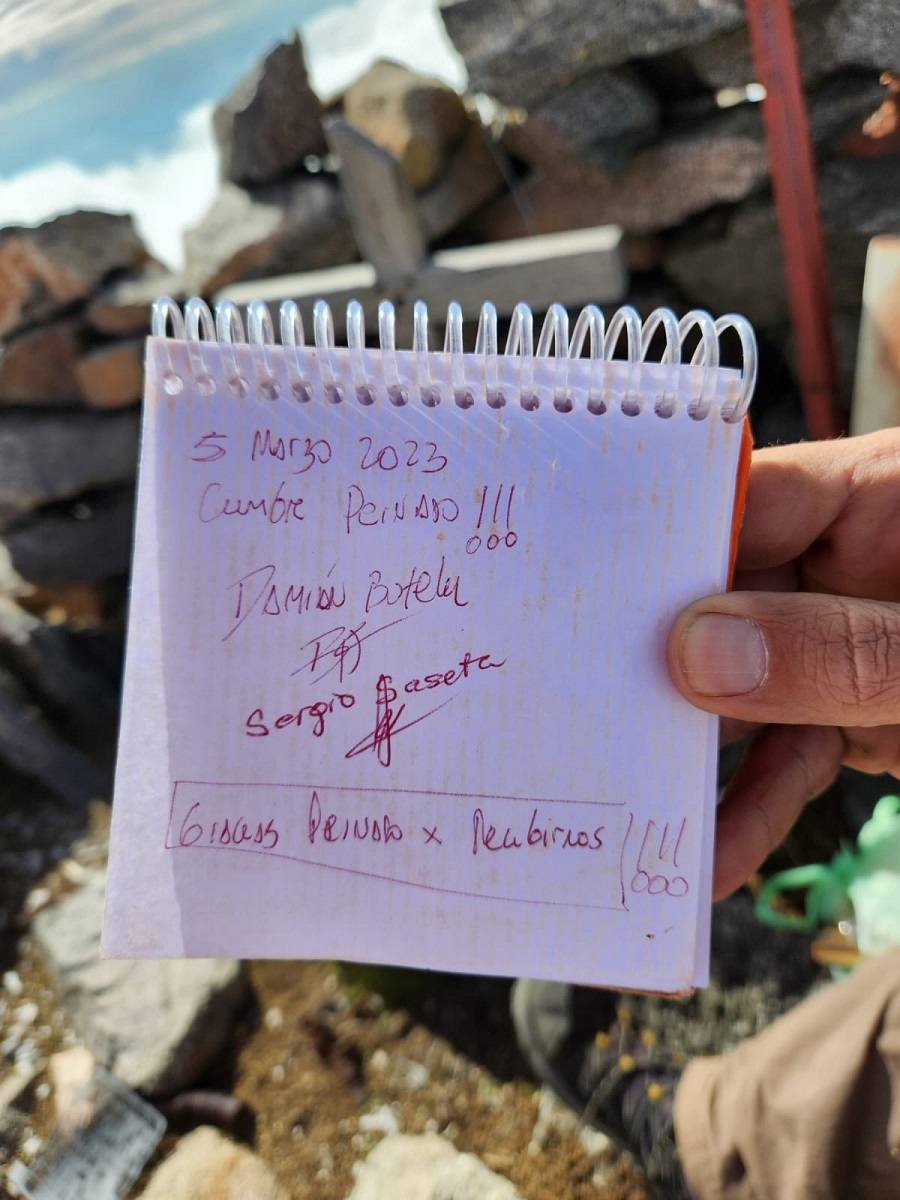 5 Marzo 2023
Cumbre PEINADO !!!
DAMIÁN Botelu
Sergio Saseta
GRACIAS PEINADO x Recibirnos !!!!